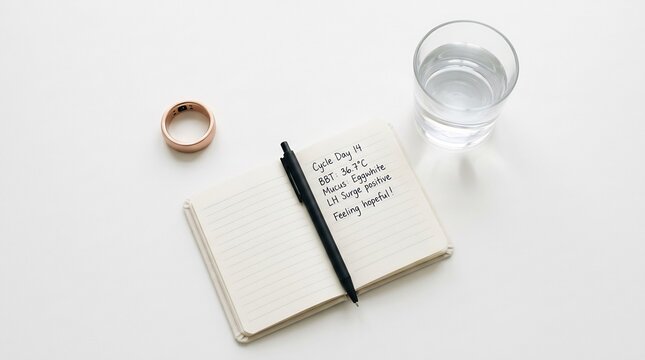 Cycle Day 14
BBT: 36.7°C
Mucus: Eggwhite
LH Surge positive
Feeling hopeful!